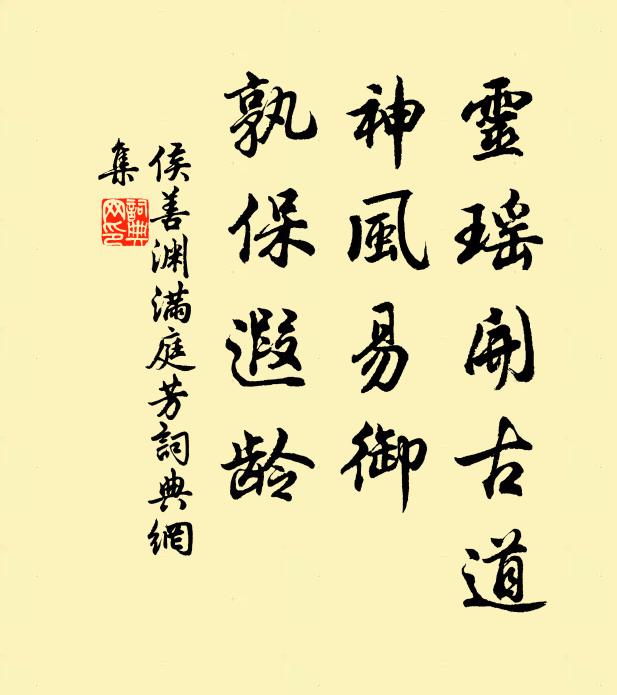 靈瑶開古道
神風易御
孰保遐龄
侯善渊滿庭芳詞典網
集
詞典
网印